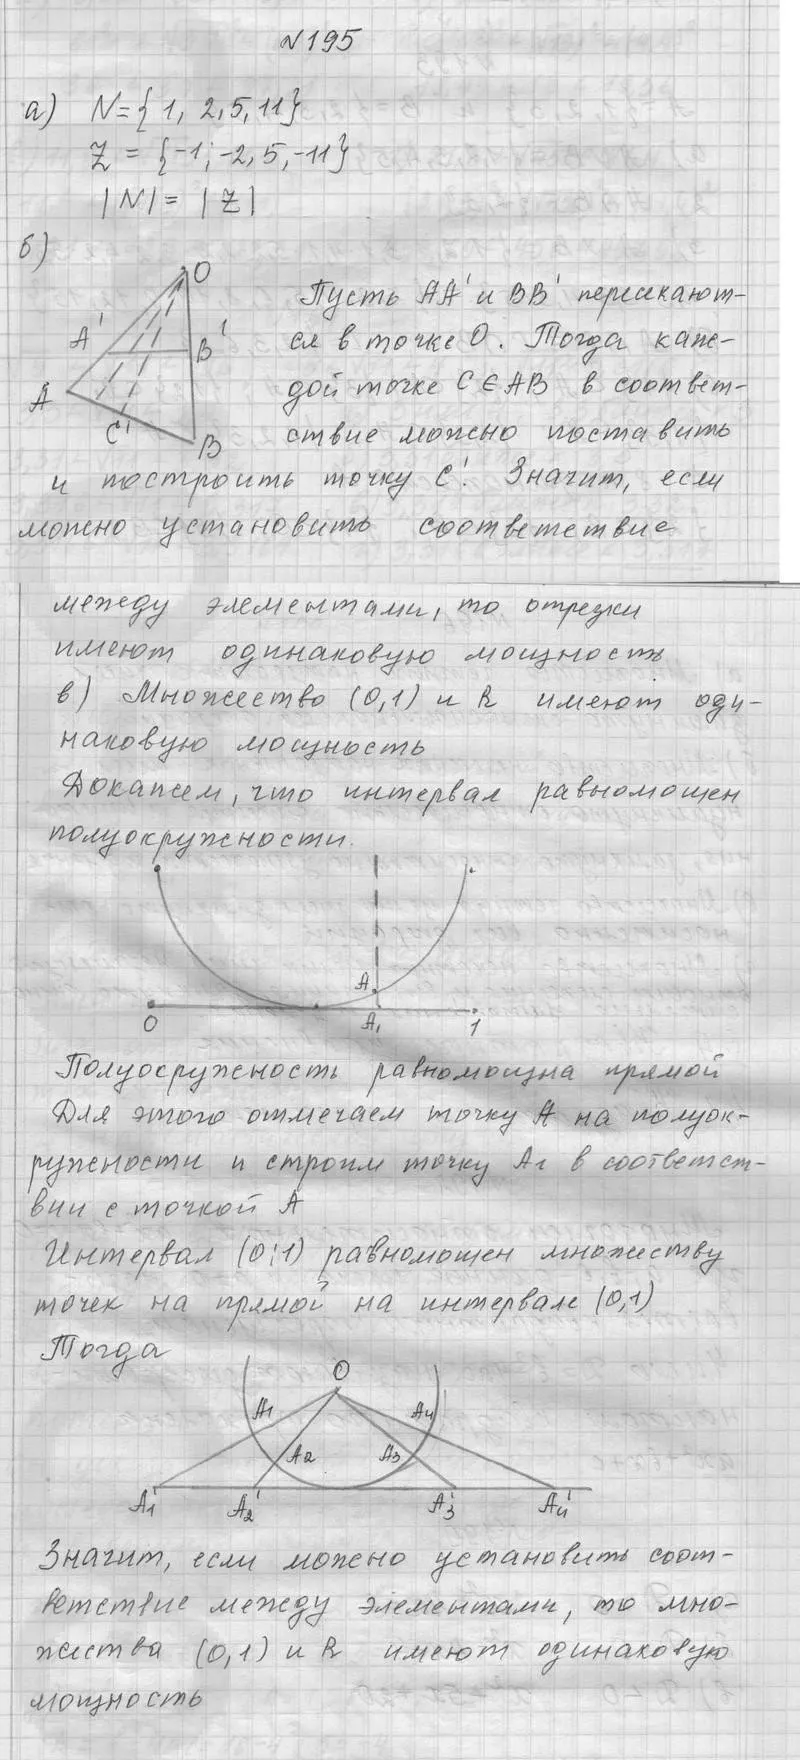 №195
а) N={1, 2,5,11}
Z = {-1; -2, 5, -11}
|N| = |Z|
б)
O
A'
B'
A
C'
B
Пусть AA' и BB' пересекают-
ся в точке O. Тогда каж-
дой точке C∈AB в соответ-
ствие можно поставить
и построить точку C'. Значит, если
можно установить соответствие
между элементами, то отрезки
имеют одинаковую мощность
в) Множество (0,1) и R имеют оди-
наковую мощность
Докажем, что интервал равномощен
полуокружности.
A
0
A₁
1
Полуокружность равномощна прямой
Для этого отмечаем точку A на полуок-
ружности и строим точку A₁ в соответст-
вии с точкой A
Интервал (0;1) равномощен множеству
точек на прямой на интервале (0,1)
Тогда
O
A1
A4
A2
A3
A1'
A2'
A3'
A4'
Значит, если можно установить соот-
ветствие между элементами, то мно-
жества (0,1) и R имеют одинаковую
мощность